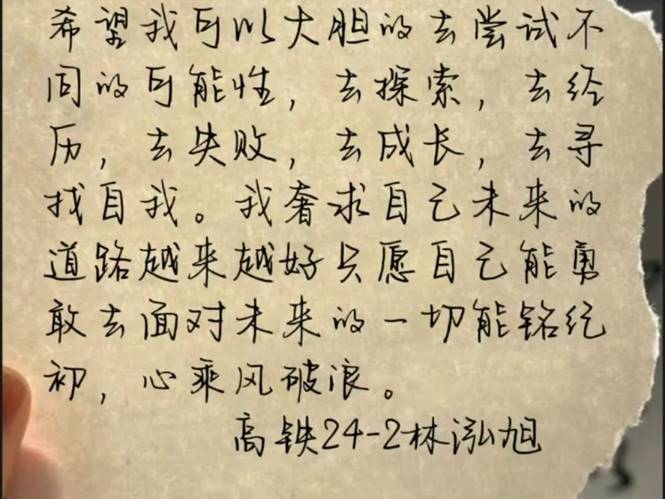 希望我可以大胆的去尝试不
同的可能性，去探索，去经
历，去失败，去成长，去寻
找自我。我奢求自己未来的
道路越来越好只愿自己能勇
敢去面对未来的一切能铭纪
初，心乘风破浪。
高铁24-2林泓旭